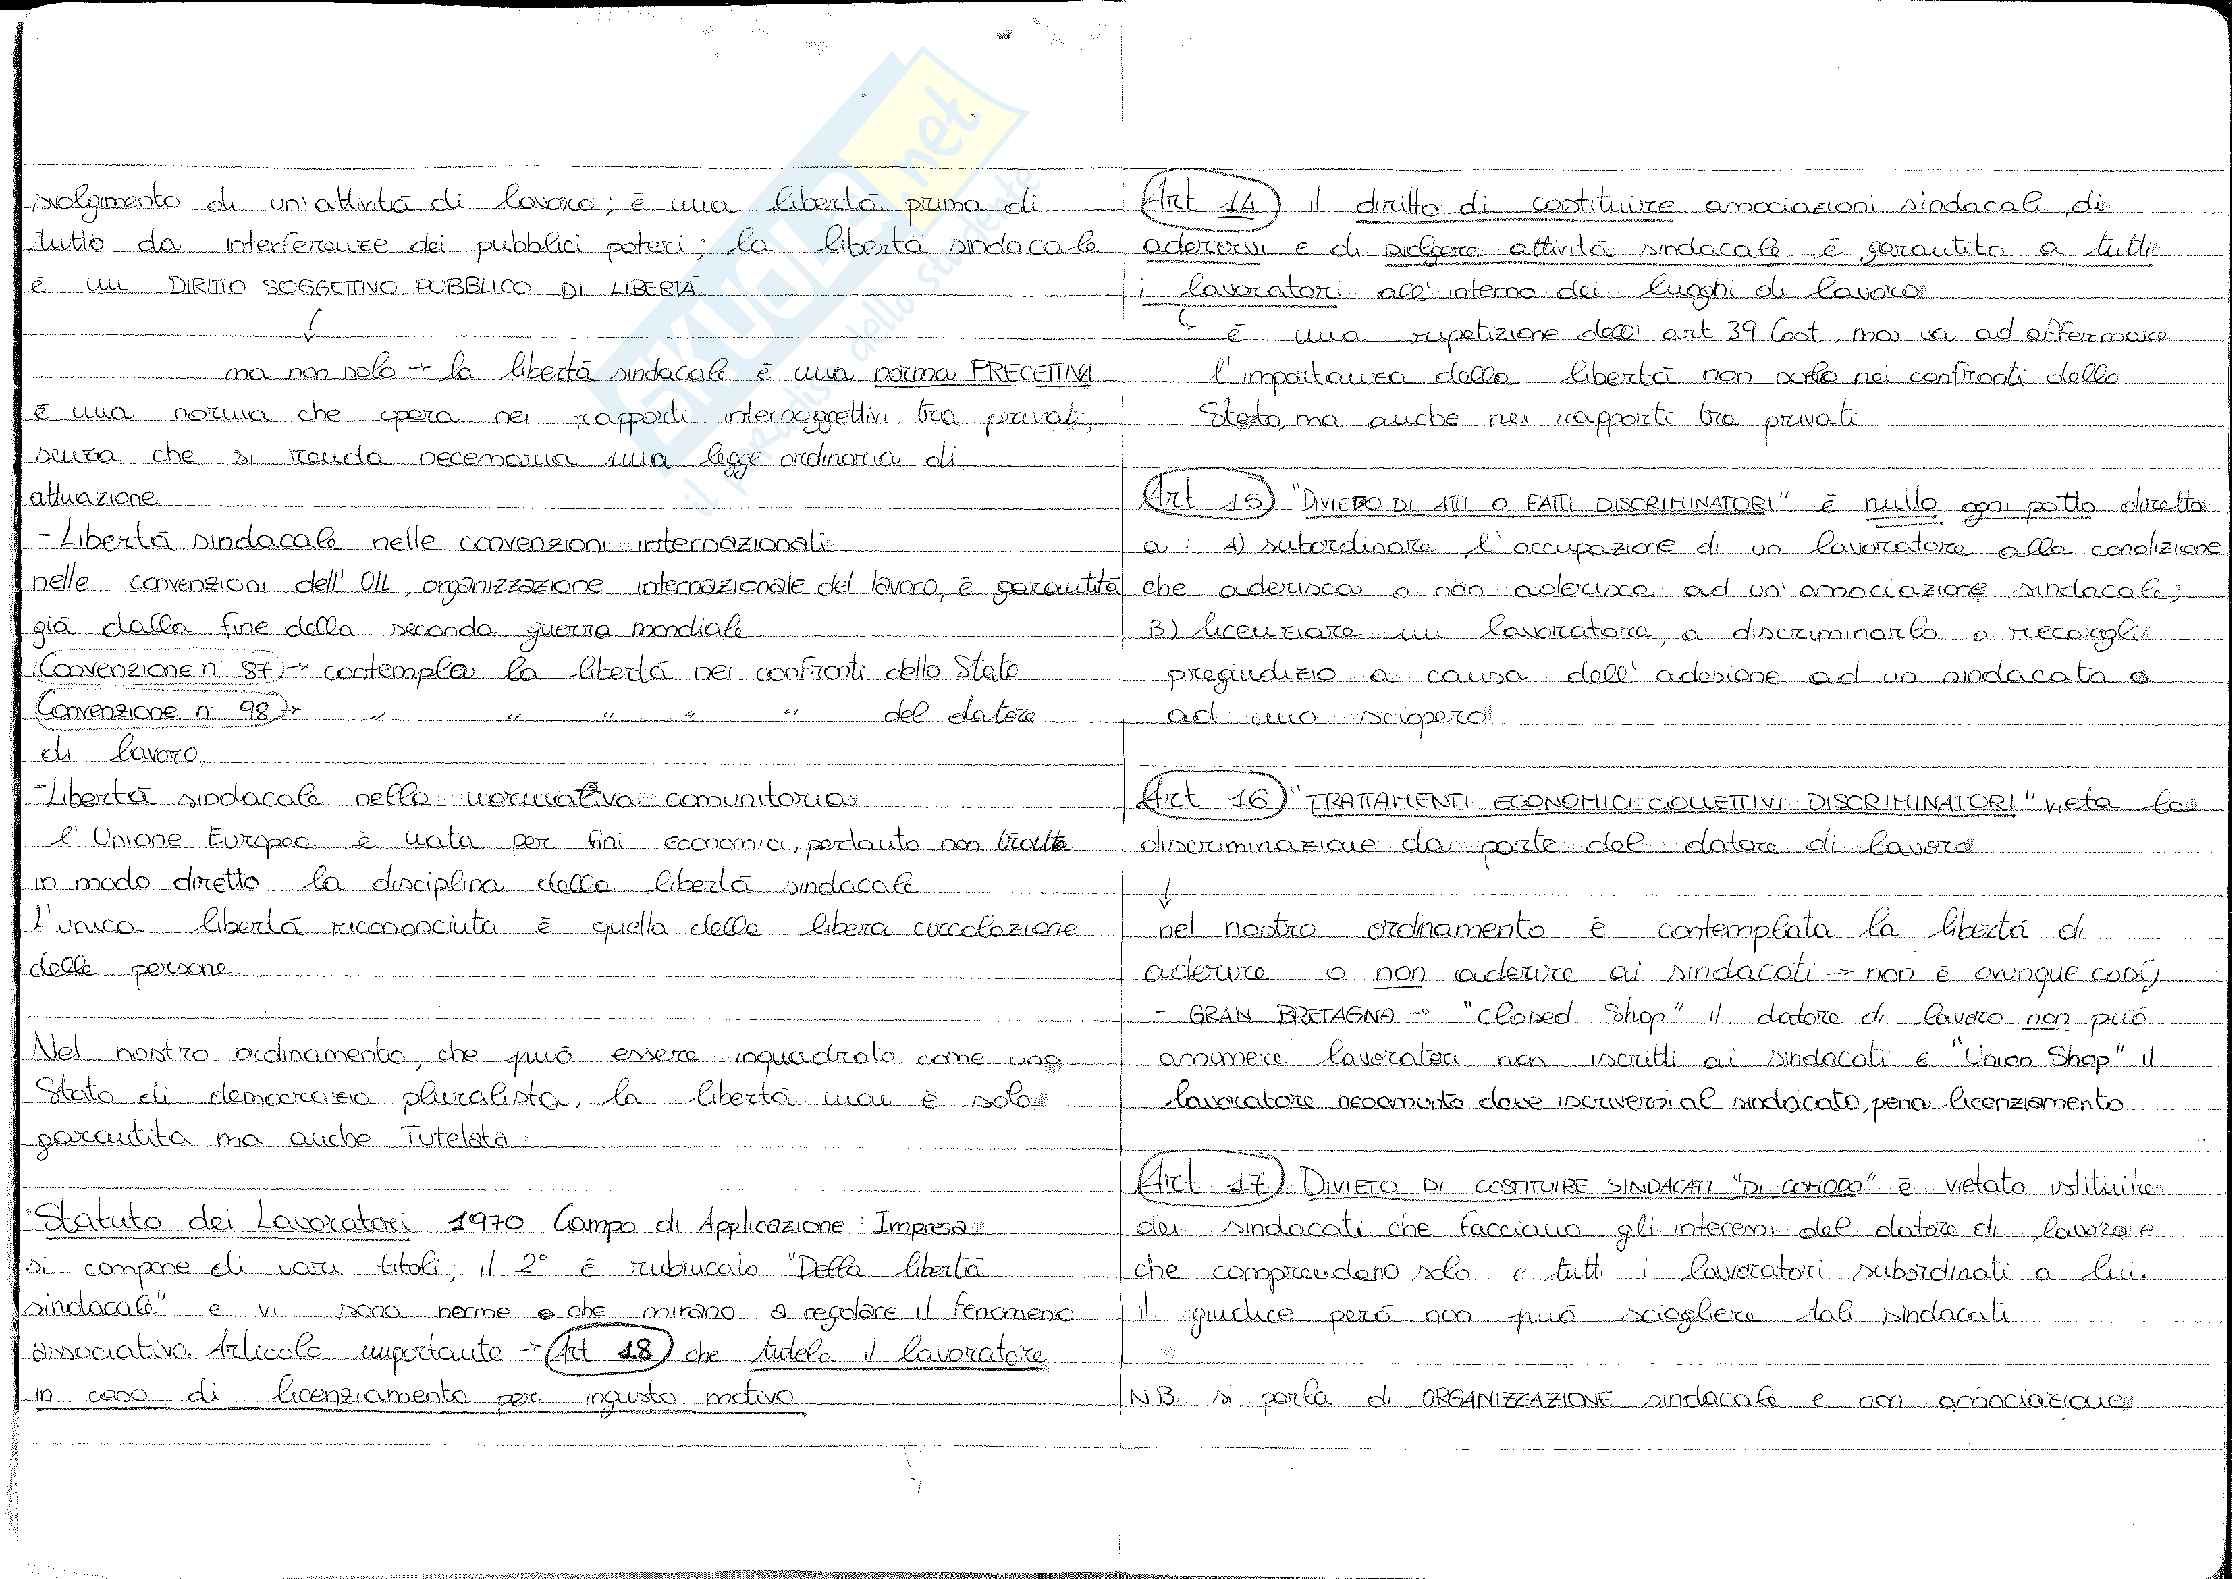 svolgimento di un'attività di lavoro; è una libertà prima di
tutto da interferenze dei pubblici poteri; la libertà sindacale
è un DIRITTO SOGGETTIVO PUBBLICO DI LIBERTÀ
ma non solo → la libertà sindacale è una norma PRECETTIVA
è una norma che opera nei rapporti intersoggettivi tra privati,
senza che si renda necessaria una legge ordinaria di
attuazione
- Libertà sindacale nelle convenzioni internazionali
nelle convenzioni dell'OIL, organizzazione internazionale del lavoro, è garantita
già dalla fine della seconda guerra mondiale
Convenzione n 87 → contempla la libertà nei confronti dello Stato
Convenzione n 98 → " " " " " del datore
di lavoro
- Libertà sindacale nella normativa comunitaria
l'Unione Europea è nata per fini economici, pertanto non tratta
in modo diretto la disciplina della libertà sindacale
L'unica libertà riconosciuta è quella della libera circolazione
delle persone
Nel nostro ordinamento, che può essere inquadrato come uno
Stato di democrazia pluralista, la libertà non è solo
garantita ma anche Tutelata
Statuto dei Lavoratori 1970 Campo di Applicazione: Impresa
si compone di vari titoli; il 2° è rubricato "Della libertà
sindacale" e vi sono norme che mirano a regolare il fenomeno
associativo. Articolo importante → Art 18 che tutela il lavoratore
in caso di licenziamento per ingiusto motivo
Art 14 il diritto di costituire associazioni sindacali, di
aderirvi e di svolgere attività sindacale è garantito a tutti
i lavoratori all'interno dei luoghi di lavoro
è una ripetizione dell'art 39 Cost. ma va ad affermare
l'importanza della libertà non solo nei confronti dello
Stato, ma anche nei rapporti tra privati
Art 15 "DIVIETO DI ATTI O FATTI DISCRIMINATORI" è nullo ogni patto diretto
a: A) subordinare l'occupazione di un lavoratore alla condizione
che aderisca o non aderisca ad un'associazione sindacale;
B) licenziare un lavoratore, o discriminarlo o recargli
pregiudizio a causa dell'adesione ad un sindacato o
ad uno sciopero
Art 16 "TRATTAMENTI ECONOMICI COLLETTIVI DISCRIMINATORI" vieta la
discriminazione da parte del datore di lavoro
nel nostro ordinamento è contemplata la libertà di
aderire o non aderire ai sindacati → non è ovunque così
- GRAN BRETAGNA → "Closed Shop" il datore di lavoro non può
assumere lavoratori non iscritti ai sindacati e "Union Shop" il
lavoratore neoassunto deve iscriversi al sindacato, pena licenziamento
Art 17 DIVIETO DI COSTITUIRE SINDACATI "DI COMODO" è vietato istituire
dei sindacati che facciano gli interessi del datore di lavoro e
che comprendano solo e tutti i lavoratori subordinati a lui.
il giudice però non può sciogliere tali sindacati
NB. si parla di ORGANIZZAZIONE sindacale e non associazione